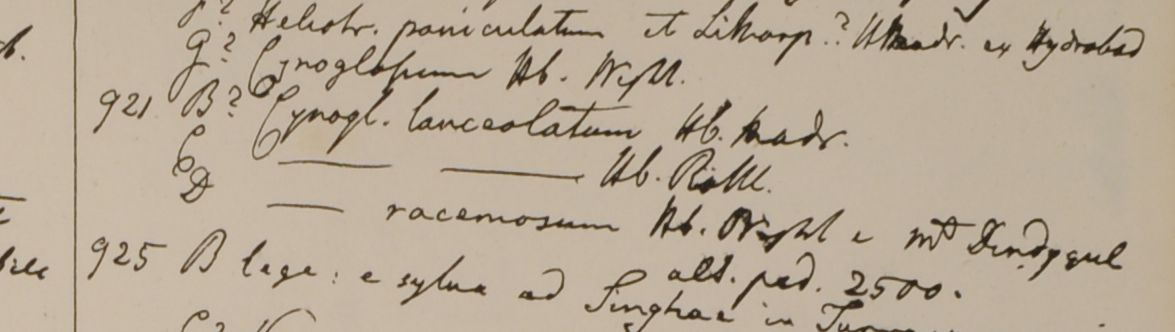 Heliotr. paniculatum et Lithosp.? Hb Madr. ex Hydrabad
G? Cynoglossum Hb. Wight.
921 B? Cynogl. lanceolatum Hb. Madr.
C — — Hb. Rottl.
D — racemosum Hb. Wight e mt Dindygul
alt. ped. 2500.
925 B lege: e sylva ad Singhae in